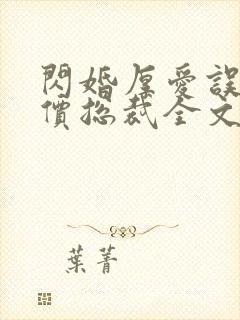 閃婚厚愛誤
價捴裁全文
葉菁